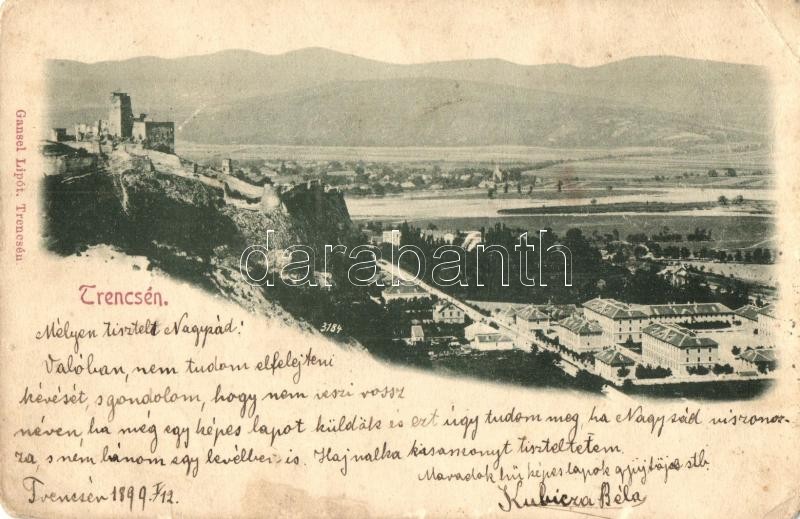 Gansel Lipót. Trencsén
darabanth
3184
Trencsén.
Mélyen tisztelt Nagysád!
Valóban, nem tudom elfelejteni
kérését, s gondolom, hogy nem veszi rossz
néven, ha még egy képes lapot küldök és ezt úgy tudom meg, ha Nagysád viszonoz-
za, s nem bánom egy levélben is. Hajnalka kisasszonyt tiszteltetem.
Maradok hű képes lapok gyűjtője stb.
Trencsén 1899 I/12.
Kubicza Béla